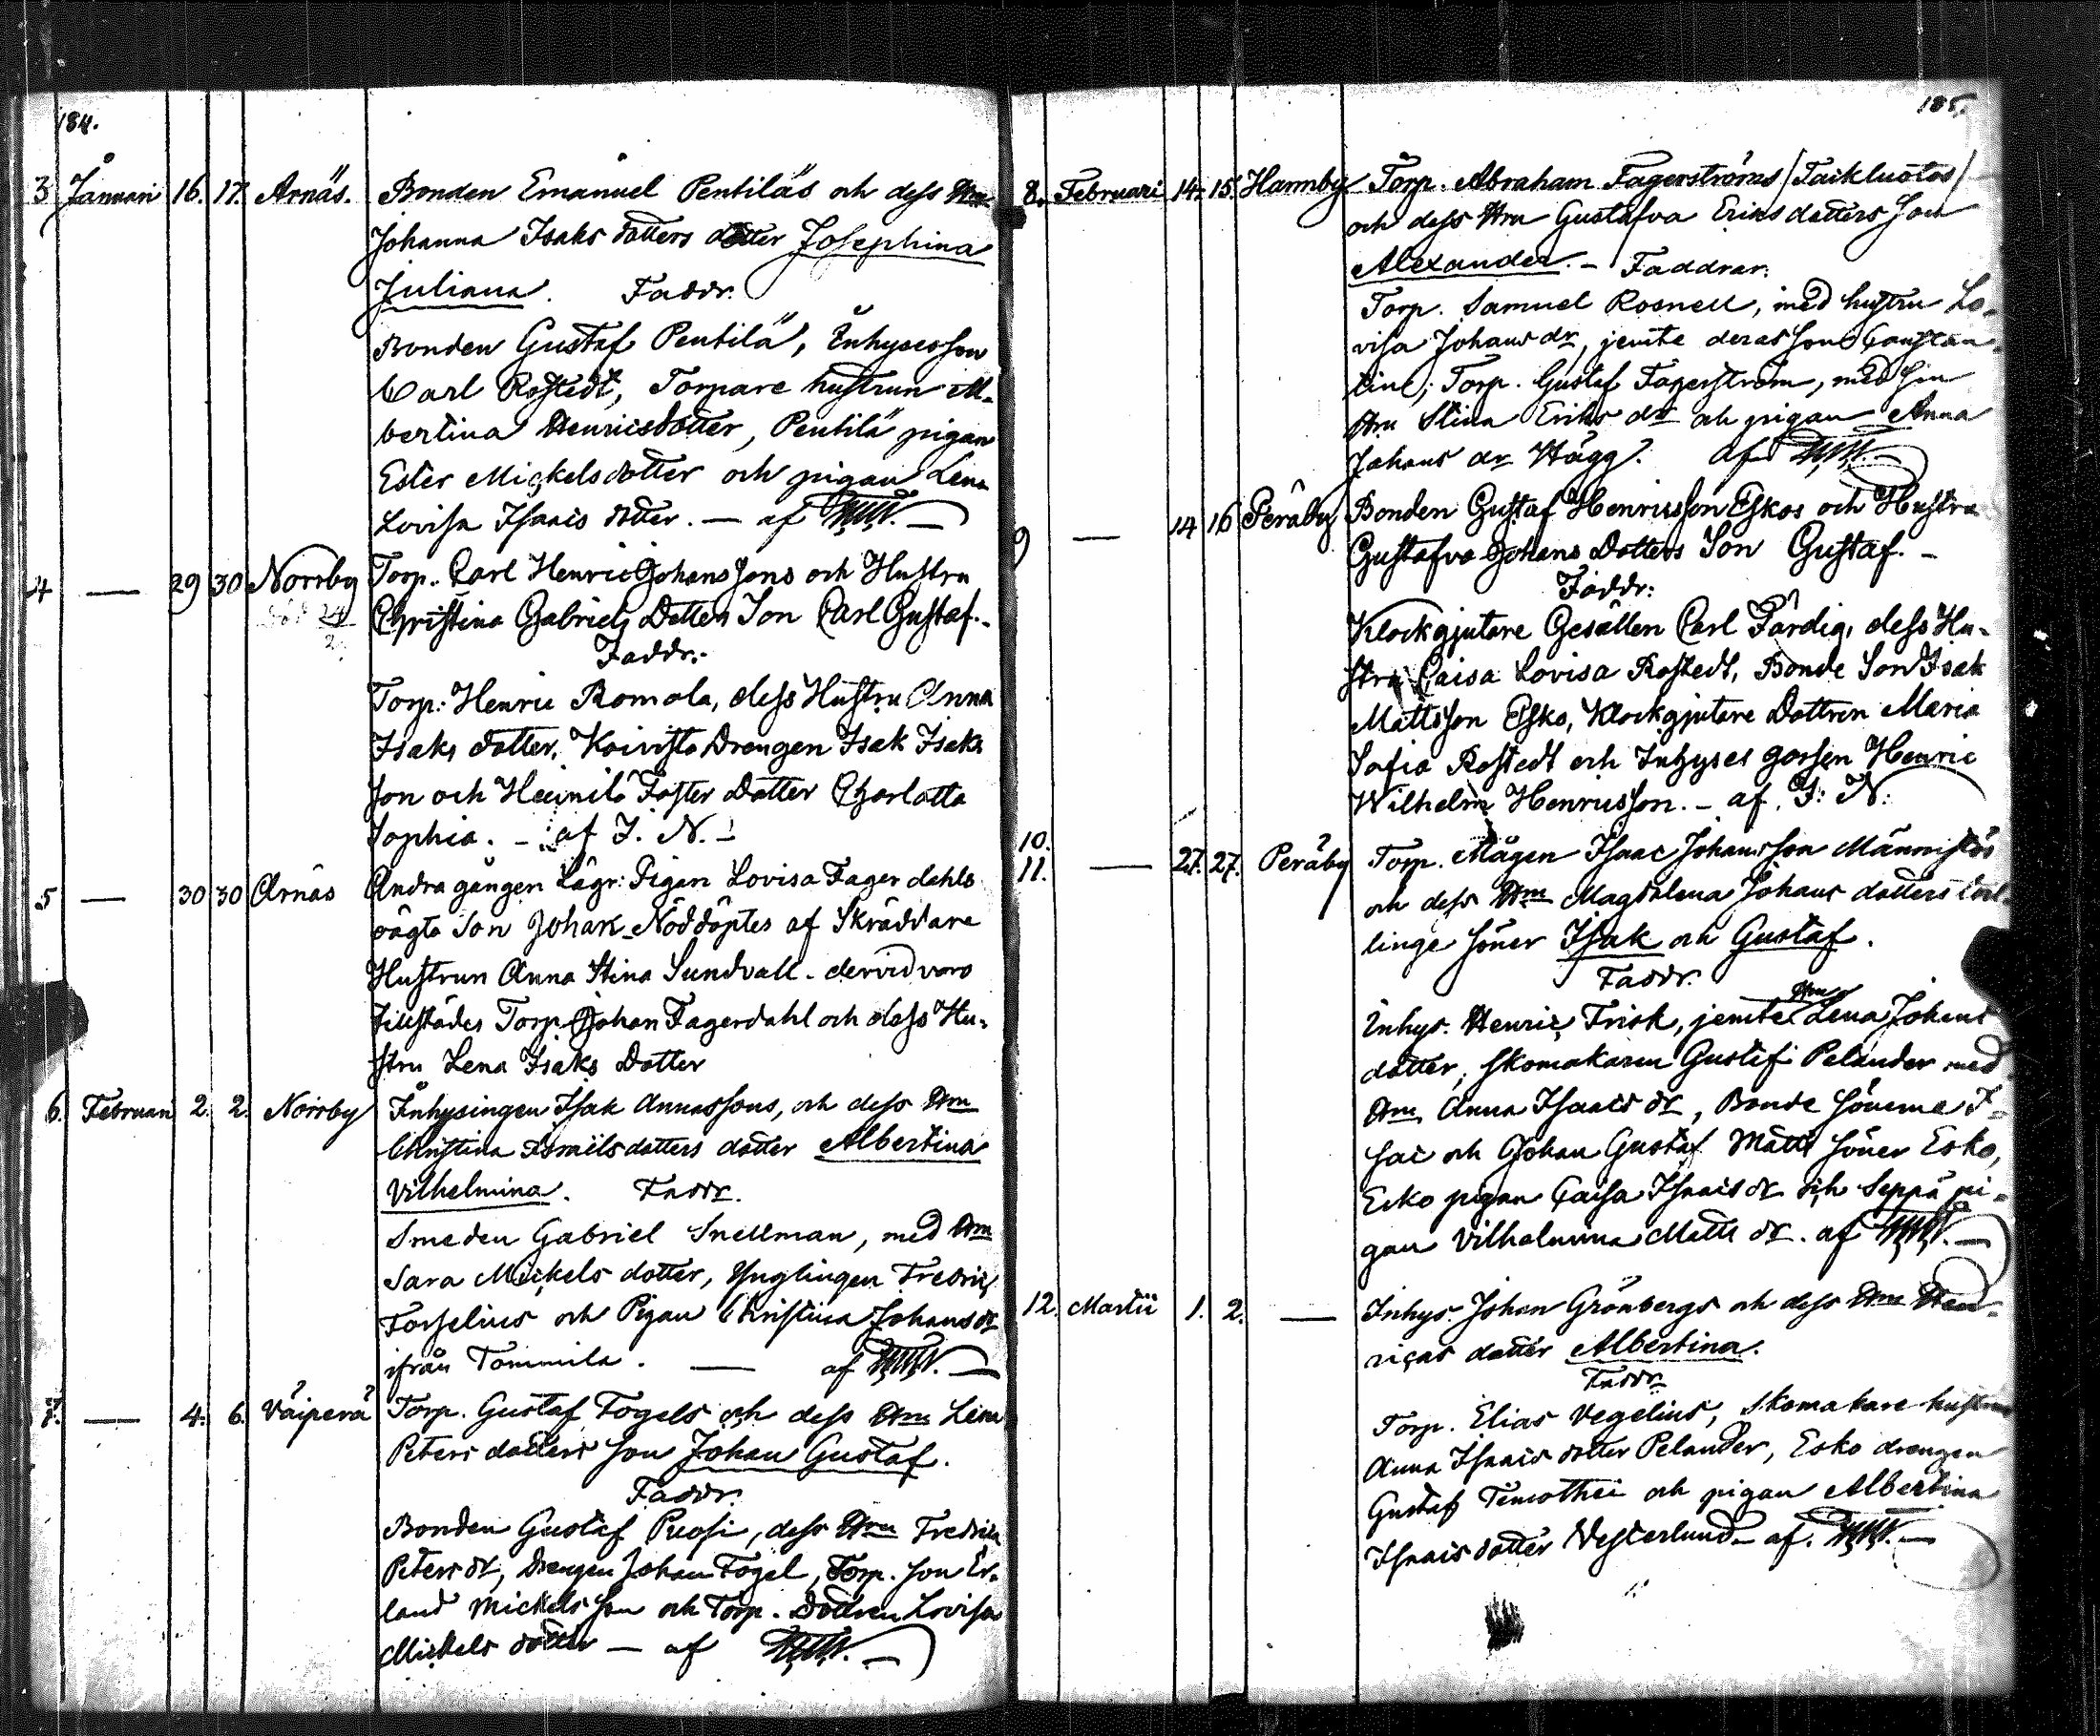 184.
3 Januari 16. 17. Arnäs. Bonden Emanuel Pentiläs och dess Hru
Johanna Isaks dotters dotter Josephina
Juliana. Faddr.
Bonden Gustaf Pentilä, Inhyses son
Carl Rostedt, Torpare hustrun Al-
bertina Henricsdotter, Pentilä pigan
Ester Mickelsdotter och pigan Lena
Lovisa Isaacs dotter. — af
4 — 29 30 Norrby Torp. Carl Henric Johanssons och Hustru
Christina Gabriels Dotters Son Carl Gustaf.-
Faddr.
Torp: Henric Romola, dess Hustru Anna
Isaks dotter, Koivisto Drengen Isak Isaks
son och Heinilä Foster Dotter Charlotta
Sophia. - af J. N.-
5 — 30 30 Arnäs Andra gången Lägr: Pigan Lovisa Fagerdahls
oägta Son Johan Nöddöptes af Skräddare
Hustrun Anna Stina Sundvall - dervid voro
tillstädes Torp Johan Fagerdahl och dess Hu-
stru Lena Isaks Dotter
6. Februari 2. 2. Norrby Inhysingen Isak Annassons, och dess Hru
Christina Israelsdotters dotter Albertina
Vilhelmina. Faddr.
Smeden Gabriel Snellman, med Hru
Sara Mickels dotter, Ynglingen Fredric
Forselius och Pigan Christina Johans dr
ifrån Tommila. — af
7. — 4. 6. Väiperä Torp. Gustaf Fogels och dess Hru Lena
Peters dotters son Johan Gustaf.
Faddr.
Bonden Gustaf Puosi, dess Hru Fredrica
Peters dr, Drengen Johan Fogel, Torp. son Er-
land Mickelsson och Torp. Dottren Lovisa
Mickels dotter — af
185.
8. Februari 14. 15. Hannby Torp. Abraham Fagerströms /Taikluotos/
och dess Hru Gustafva Ericsdotters son
Alexander. - Faddrar.
Torp. Samuel Rosnell, med hustru Lo-
visa Johans dr, jemte deras son Constan-
tin; Torp. Gustaf Fagerström, med sin
Hru Stina Eriks dr och pigan Anna
Johans dr Hägg. af
9 — 14 16 Peräby Bonden Gustaf Henricsson Eskos och Hustru
Gustafva Johans Dotters Son Gustaf. -
Faddr:
Klockgjutare Gesällen Carl Färdig, dess Hu-
stru Caisa Lovisa Rostedt, Bonde Son Isak
Mattsson Esko, Klockgjutare Dottren Maria
Sofia Rostedt och Inhyses gossen Henric
Wilhelm Henricsson. - af J: N:
10.
11. — 27. 27. Peräby Torp. Mågen Isaac Johansson Männistös
och dess Hru Magdalena Johans dotters tvil-
linge söner Isak och Gustaf.
Faddr.
Inhys. Henric Frisk, jemte Hru Lena Johans
dotter, skomakaren Gustaf Pelander med
Hru Anna Isaacs dr, Bonde sönerne I-
sac och Johan Gustaf Matts söner Esko,
Esko pigan Caisa Isaacs dr och Seppä pi-
gan Vilhelmina Matts dr. af
12. Martii 1. 2. — Inhys. Johan Grönbergs och dess Hru Hen-
ricas dotter Albertina.
Faddr.
Torp. Elias Vegelius, skomakare hustrun
Anna Isaacs dotter Pelander, Esko drengen
Gustaf Timothei och pigan Albertina
Isaacs dotter Vesterlund - af.